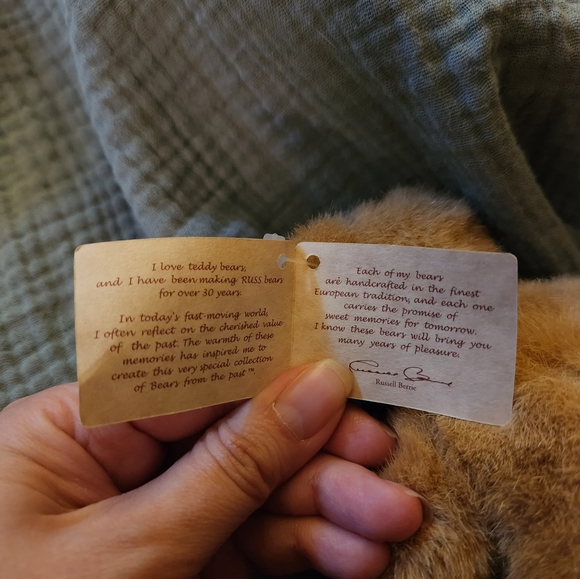 I love teddy bears,
and I have been making RUSS bears
for over 30 years.
In today's fast-moving world,
I often reflect on the cherished value
of the past. The warmth of these
memories has inspired me to
create this very special collection
of Bears from the past™
Each of my bears
are handcrafted in the finest
European tradition, and each one
carries the promise of
sweet memories for tomorrow.
I know these bears will bring you
many years of pleasure.
Russell Berrie